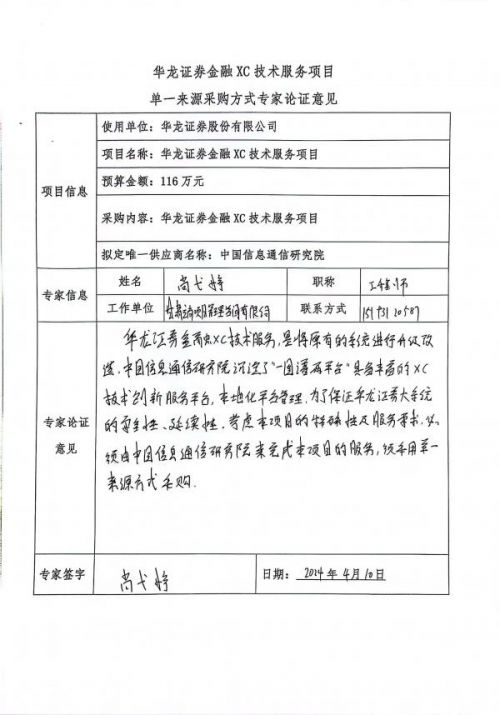 华龙证券金融 XC 技术服务项目
单一来源采购方式专家论证意见
项目信息
使用单位：华龙证券股份有限公司
项目名称：华龙证券金融 XC 技术服务项目
预算金额：116 万元
采购内容：华龙证券金融 XC 技术服务项目
拟定唯一供应商名称：中国信息通信研究院
专家信息
姓名 尚弋婷 职称 工程师
工作单位 甘肃 项目管理 有限公司 联系方式
专家论证意见
华龙证券金融XC技术服务,是将原有的系统进行升级改
造,中国信息通信研究院沉淀了"一图谱两平台"具备丰富的XC
技术创新服务平台,本地化平台管理,为了保证华龙证券大系统
的安全性、延续性,考虑本项目的特殊性及服务要求,必
须由中国信息通信研究院来完成本项目的服务,须采用单一
来源方式采购.
专家签字 尚弋婷 日期：2024 年 4 月 10 日